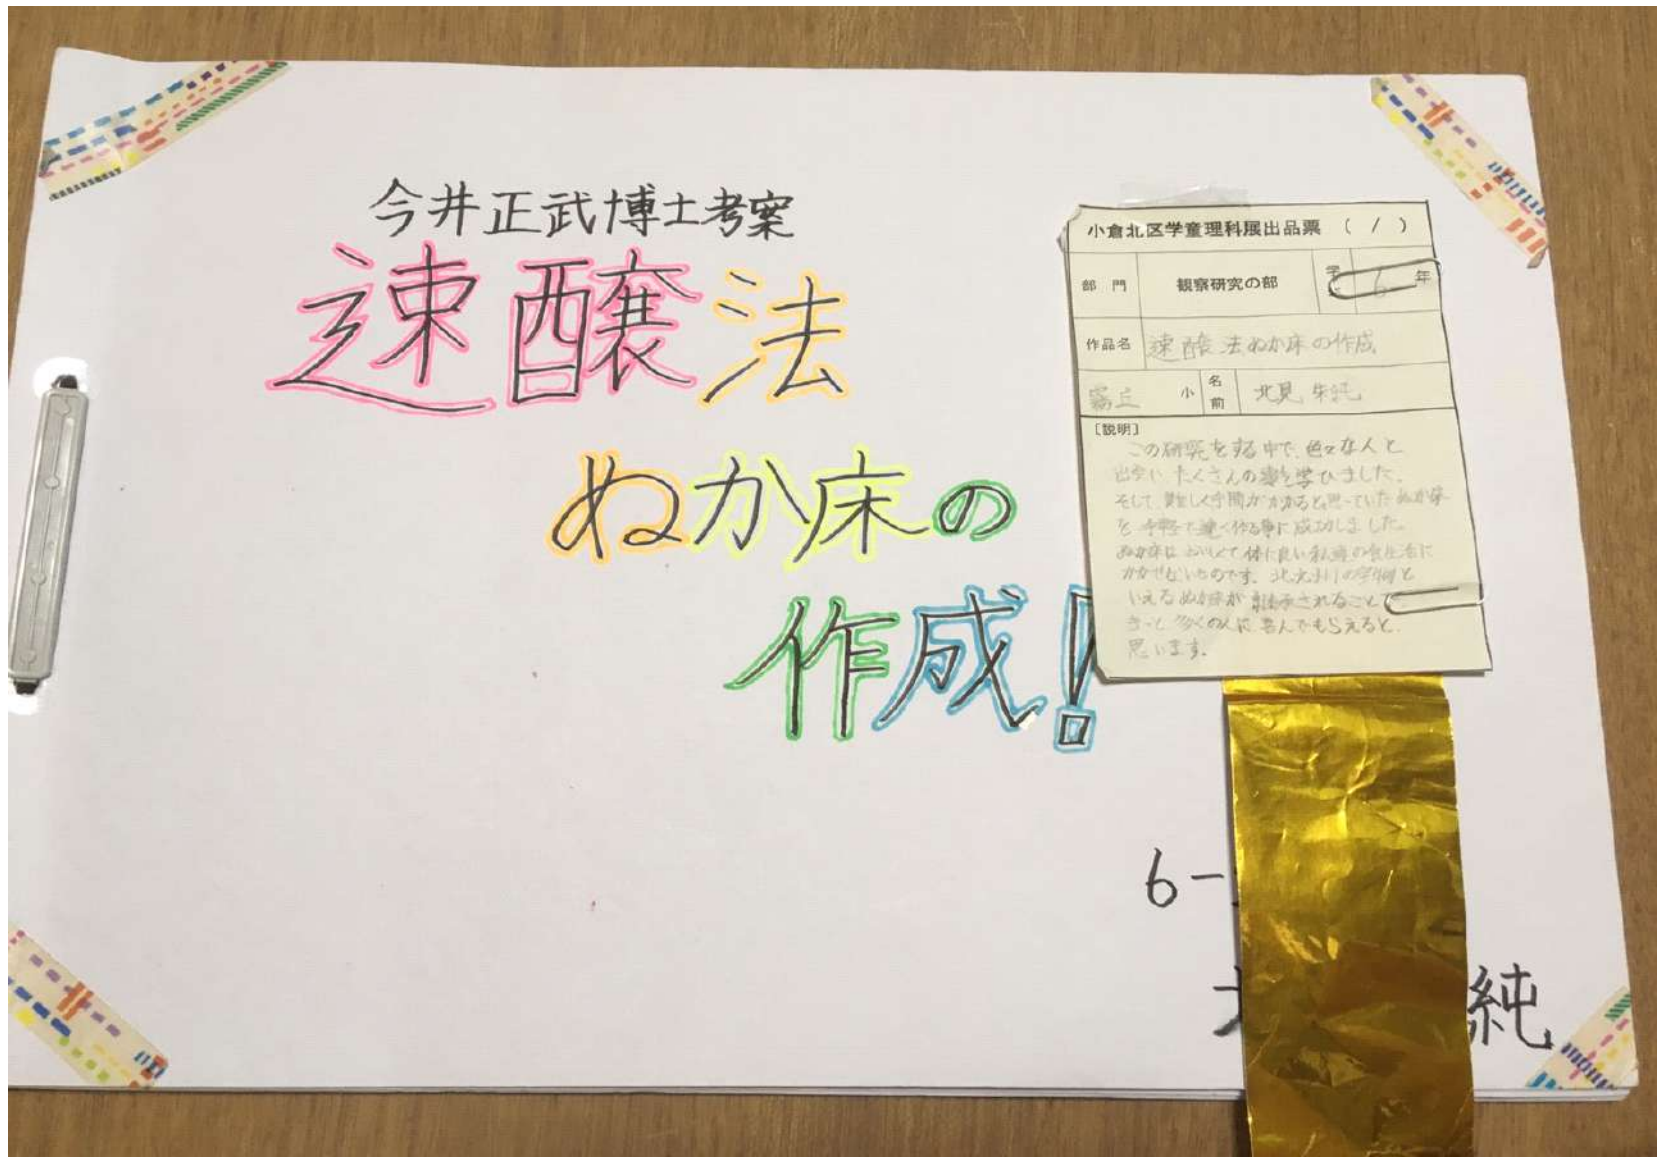 今井正武博士考案
速醸法
ぬか床の
作成!
小倉北区学童理科展出品票 ( / )
部門 観察研究の部 6年
作品名 速醸法ぬか床の作成
霧丘 小 名前 北見
[説明]
この研究をする中で、色々な人と
出会い たくさんの事を学びました。
そして、難しく手間がかかると思っていたぬか床
を 手軽で速く作る事に成功しました。
ぬか床はおいしくて体に良い私達の食生活に
かかせないものです。北九州の宝物と
いえるぬか床が継承されること
きっと多くの人に喜んでもらえると
思います。
6-
純